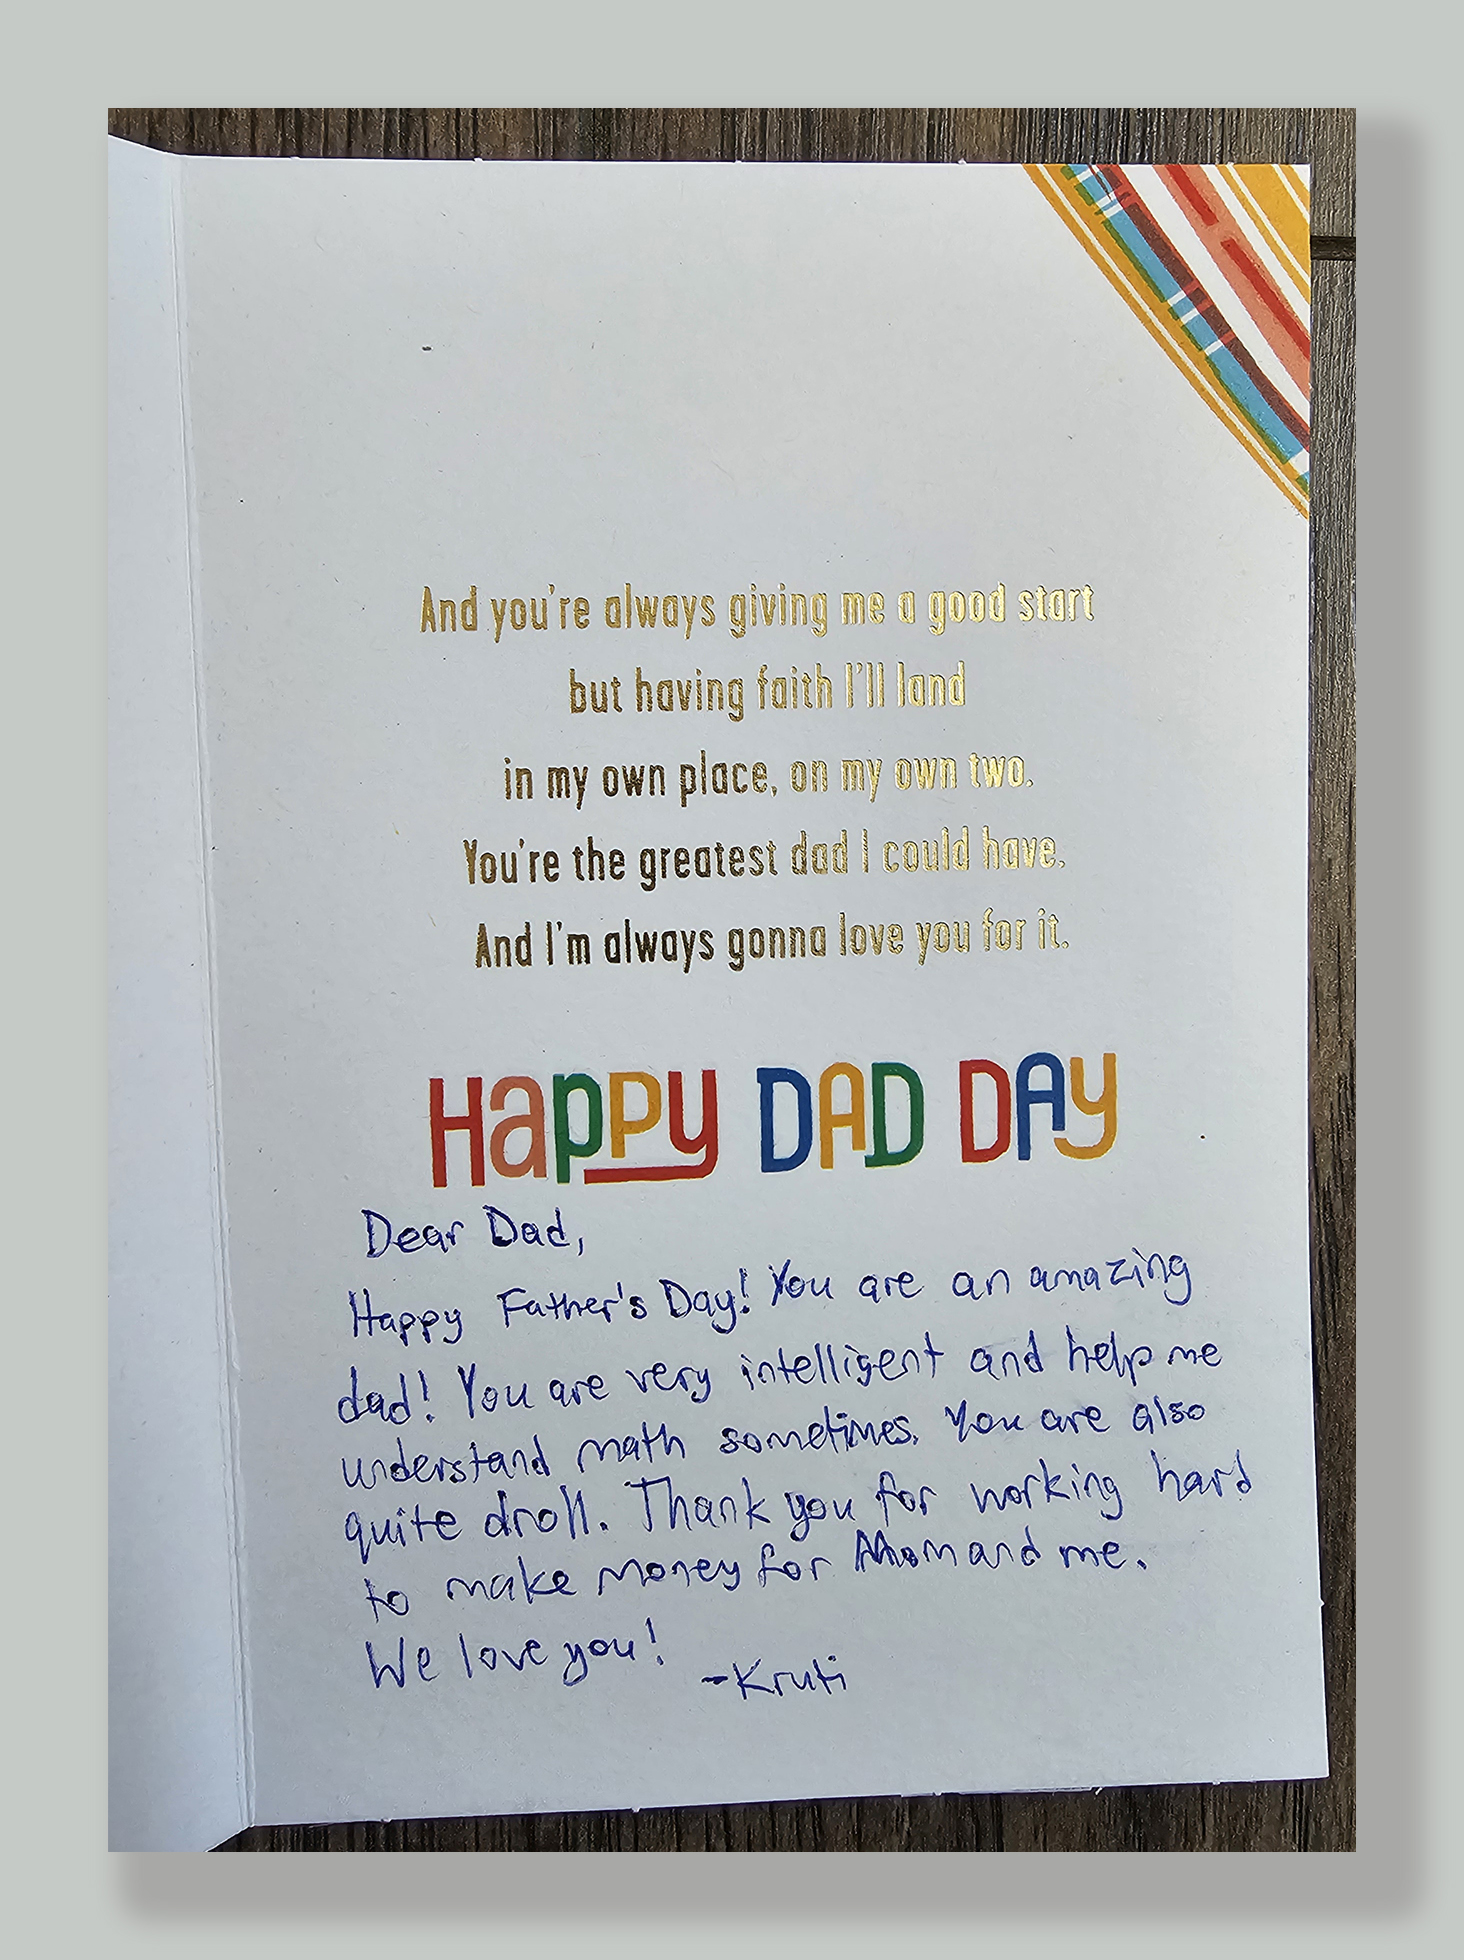 And you're always giving me a good start
but having faith I'll land
in my own place, on my own two.
You're the greatest dad I could have.
And I'm always gonna love you for it.
Happy DAD DAY
Dear Dad,
Happy Father's Day! You are an amazing
dad! You are very intelligent and help me
understand math sometimes. You are also
quite droll. Thank you for working hard
to make money for Mom and me.
We love you!
-Kruti